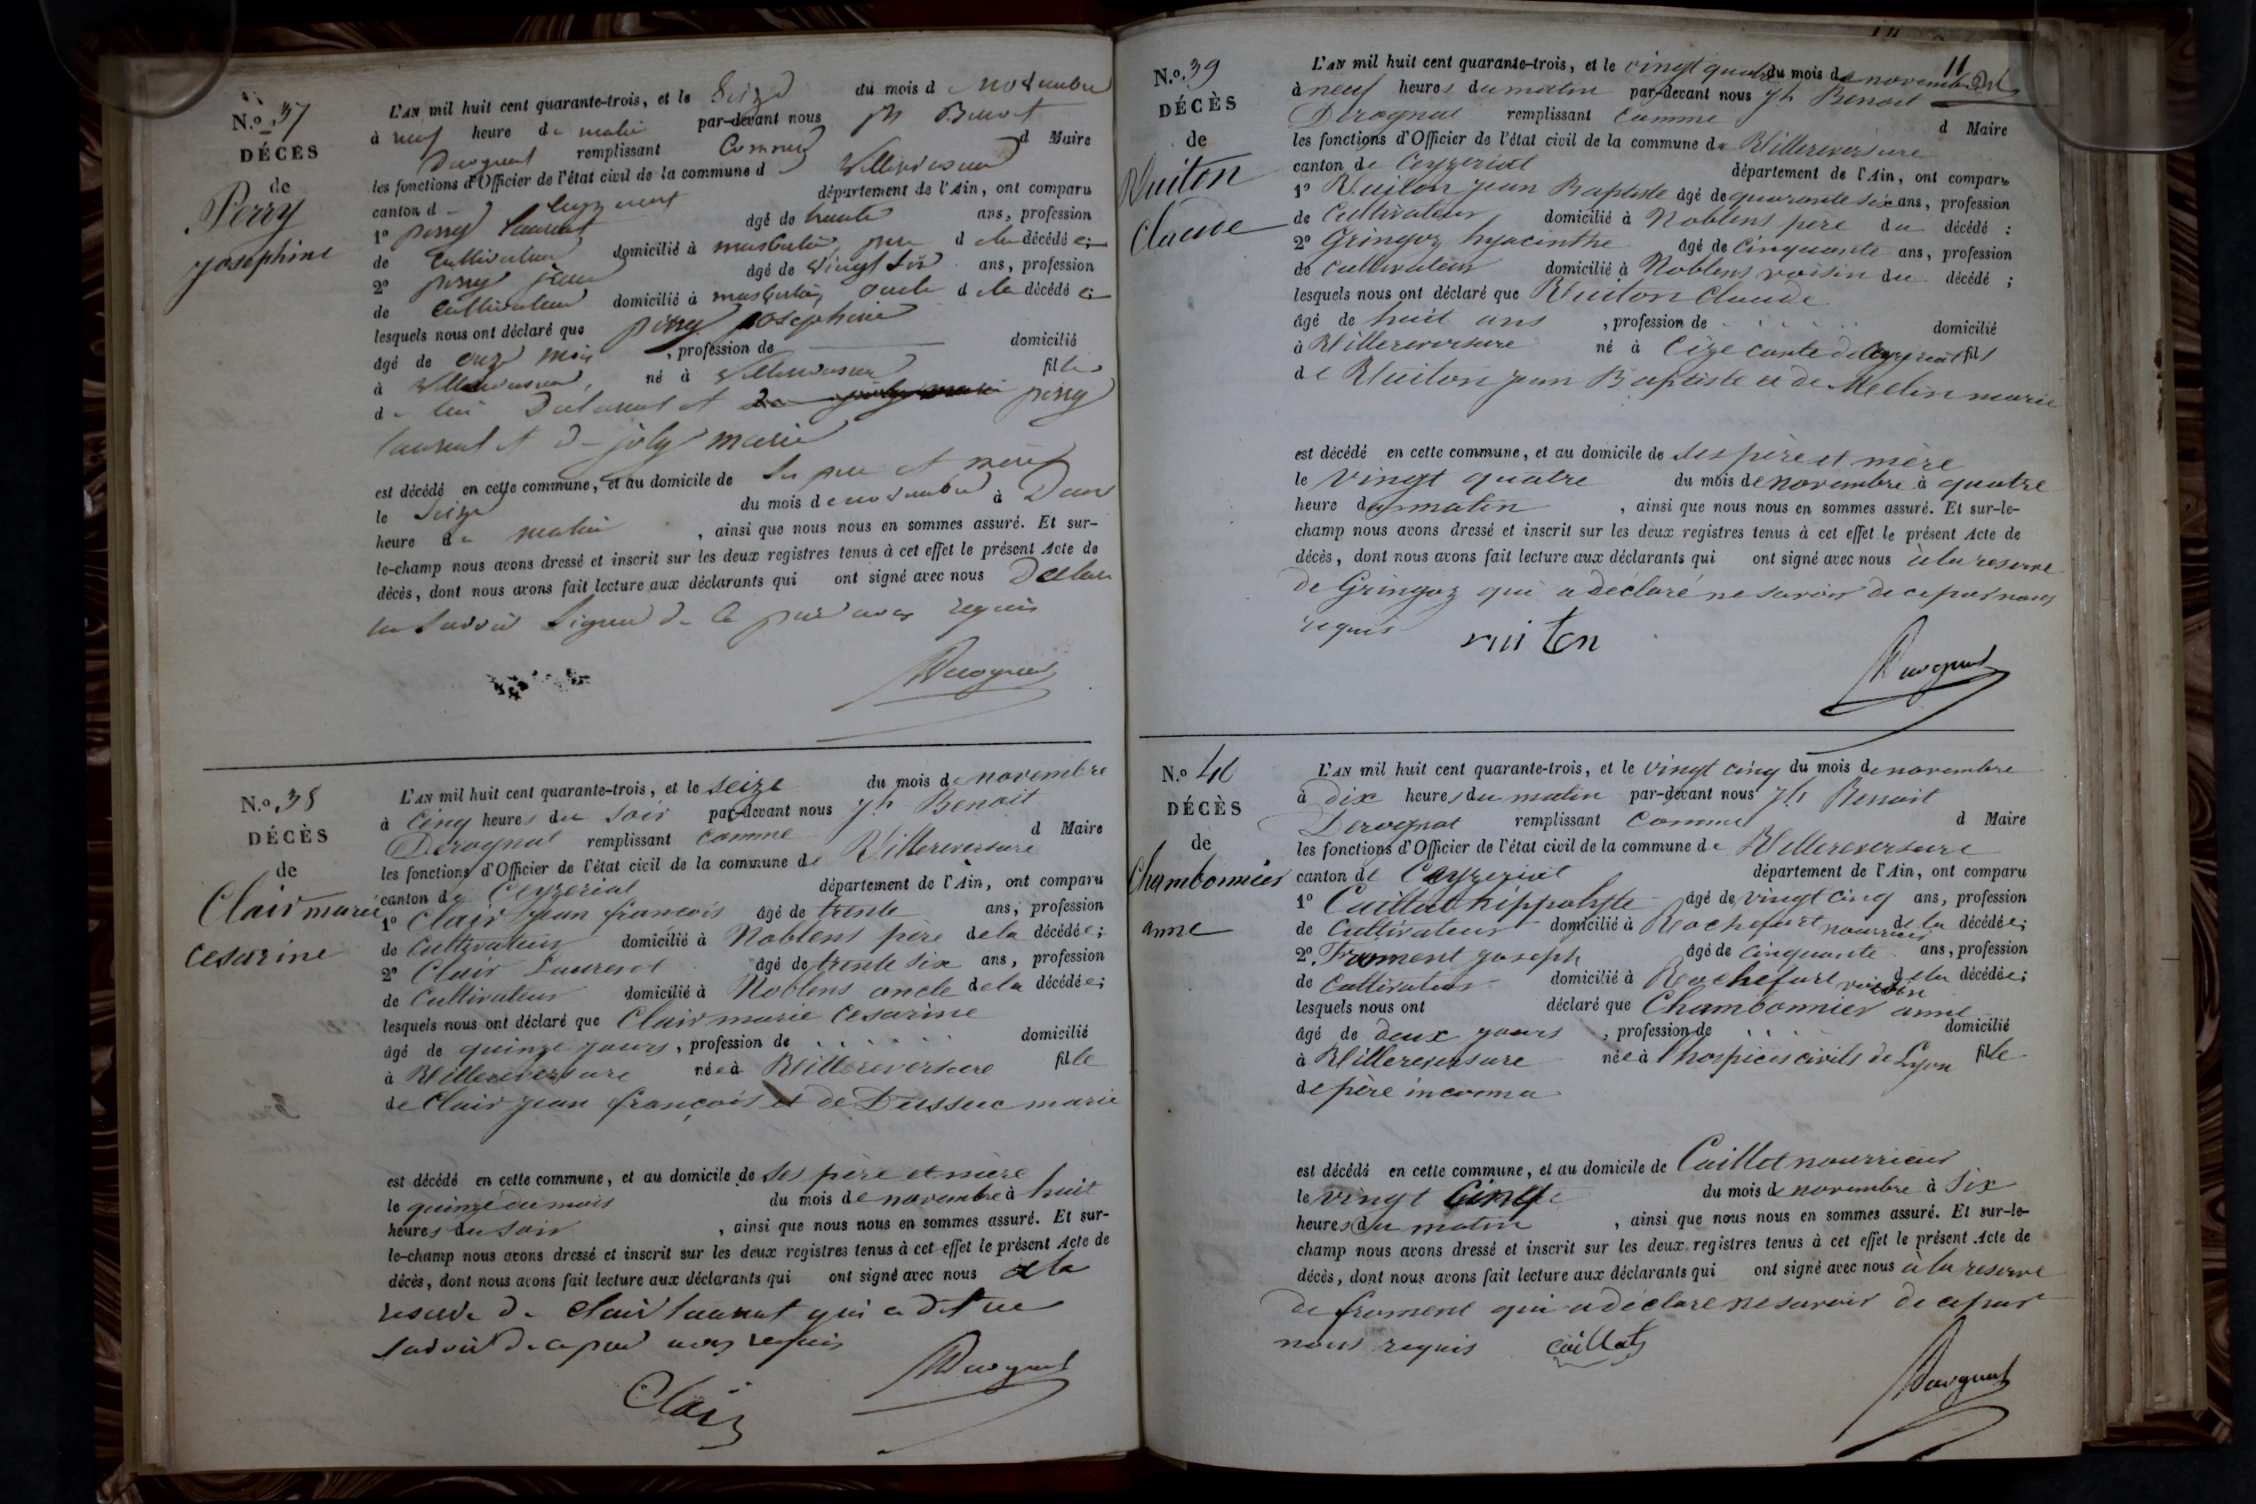 N.º 37
DÉCÈS
de
Perry
josephine
L'AN mil huit cent quarante-trois, et le Seize du mois d novembre
à neuf heure du matin par-devant nous jh Benoit
Derognat remplissant Comme d Maire
les fonctions d'Officier de l'état civil de la commune d Villereversure
canton d Ceyzeriat département de l'Ain, ont comparu
1º perry laurent âgé de trente ans, profession
de Cultivateur domicilié à père d ela décédée;
2º perry jean âgé de vingt six ans, profession
de Cultivateur domicilié à oncle d ela décédée
lesquels nous ont déclaré que perry josephine
âgé de onze mois, profession de domicilié
à Villereversure, né à Villereversure fille
de lui Declarant et perry
laurent et de joly marie
est décédé en cette commune, et au domicile de ses père et mère
le Seize du mois de novembre à Deux
heure du matin, ainsi que nous nous en sommes assuré. Et sur-
le-champ nous avons dressé et inscrit sur les deux registres tenus à cet effet le présent Acte de
décès, dont nous avons fait lecture aux déclarants qui ont signé avec nous
ne savoir signer de ce par nous requis
Derognat
N.º 38
DÉCÈS
de
Clair marie
cesarine
L'AN mil huit cent quarante-trois, et le seize du mois de novembre
à cinq heures du soir par-devant nous jh Benoit
Derognat remplissant comme d Maire
les fonctions d'Officier de l'état civil de la commune de Villereversure
canton de Ceyzeriat département de l'Ain, ont comparu
1º Clair jean françois âgé de trente ans, profession
de Cultivateur domicilié à Noblens père dela décédée;
2º Clair Laurent âgé de trente six ans, profession
de Cultivateur domicilié à Noblens oncle dela décédée;
lesquels nous ont déclaré que Clair marie Cesarine
âgé de quinze jours, profession de . . . . . . domicilié
à Villereversure née à Villereversure fille
de Clair jean françois et de Dussuc marie
est décédé en cette commune, et au domicile de ses père et mère
le quinze du mois du mois de novembre à huit
heures du soir, ainsi que nous nous en sommes assuré. Et sur-
le-champ nous avons dressé et inscrit sur les deux registres tenus à cet effet le présent Acte de
décès, dont nous avons fait lecture aux déclarants qui ont signé avec nous à la
reserve de Clair laurent qui a dit ne
savoir de ce par nous requis
Derognat
Clair
11
N.º 39
DÉCÈS
de
Vuiton
Claude
L'AN mil huit cent quarante-trois, et le vingt quatre du mois de novembre
à neuf heures du matin par-devant nous jh Benoit
Derognat remplissant comme d Maire
les fonctions d'Officier de l'état civil de la commune de Villereversure
canton de Ceyzeriat département de l'Ain, ont comparu
1º Vuiton jean Baptiste âgé de quarante six ans, profession
de Cultivateur domicilié à Noblens père du décédé :
2º Gringoz hyacinthe âgé de cinquante ans, profession
de cultivateur domicilié à Noblens voisin du décédé ;
lesquels nous ont déclaré que Vuiton Claude
âgé de huit ans, profession de . . . . . domicilié
à Villereversure né à Cize canton de Ceyzeriat fils
de Vuiton jean Baptiste et de Merlin marie
est décédé en cette commune, et au domicile de ses père et mère
le vingt quatre du mois de novembre à quatre
heure du matin, ainsi que nous nous en sommes assuré. Et sur-le-
champ nous avons dressé et inscrit sur les deux registres tenus à cet effet le présent Acte de
décès, dont nous avons fait lecture aux déclarants qui ont signé avec nous à la reserve
de Gringoz qui a déclaré ne savoir de ce par nous
requis
vuiton
Derognat
N.º 40
DÉCÈS
de
Chambonnier
anne
L'AN mil huit cent quarante-trois, et le vingt cinq du mois de novembre
à dix heures du matin par-devant nous jh Benoit
Derognat remplissant comme d Maire
les fonctions d'Officier de l'état civil de la commune de Villereversure
canton de Ceyzeriat département de l'Ain, ont comparu
1º Caillat hippolyte âgé de vingt cinq ans, profession
de Cultivateur domicilié à Rochefort nourricier de la décédée;
2º. Froment joseph âgé de cinquante ans, profession
de Cultivateur domicilié à Rochefort voisin dela décédée;
lesquels nous ont déclaré que Chambonnier anne
âgé de deux jours, profession de . . . . domicilié
à Villereversure née à l'hospices civils de Lyon fille
de père inconnu
est décédé en cette commune, et au domicile de Caillat nourricier
le vingt cinq du mois de novembre à six
heures du matin, ainsi que nous nous en sommes assuré. Et sur-le-
champ nous avons dressé et inscrit sur les deux registres tenus à cet effet le présent Acte de
décès, dont nous avons fait lecture aux déclarants qui ont signé avec nous à la reserve
de froment qui a déclaré ne savoir de ce par
nous requis
caillat
Derognat